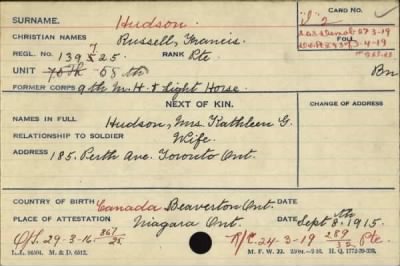 SURNAME. Hudson. CARD NO.
CHRISTIAN NAMES Russell, Francis. FOLL
REGL. NO. 139525. RANK Pte
UNIT 75th 58th Bn
FORMER CORPS 9th M.H. & Light Horse.
NEXT OF KIN. CHANGE OF ADDRESS
NAMES IN FULL Hudson, Mrs. Kathleen G.
RELATIONSHIP TO SOLDIER Wife.
ADDRESS 185, Perth Ave. Toronto Ont.
COUNTRY OF BIRTH Canada Beaverton Ont. DATE
PLACE OF ATTESTATION Niagara Ont. DATE Sept 8th, 1915.
O/S. 29-3-16 867/25 R/C. 24-3-19 289/32 Pte.